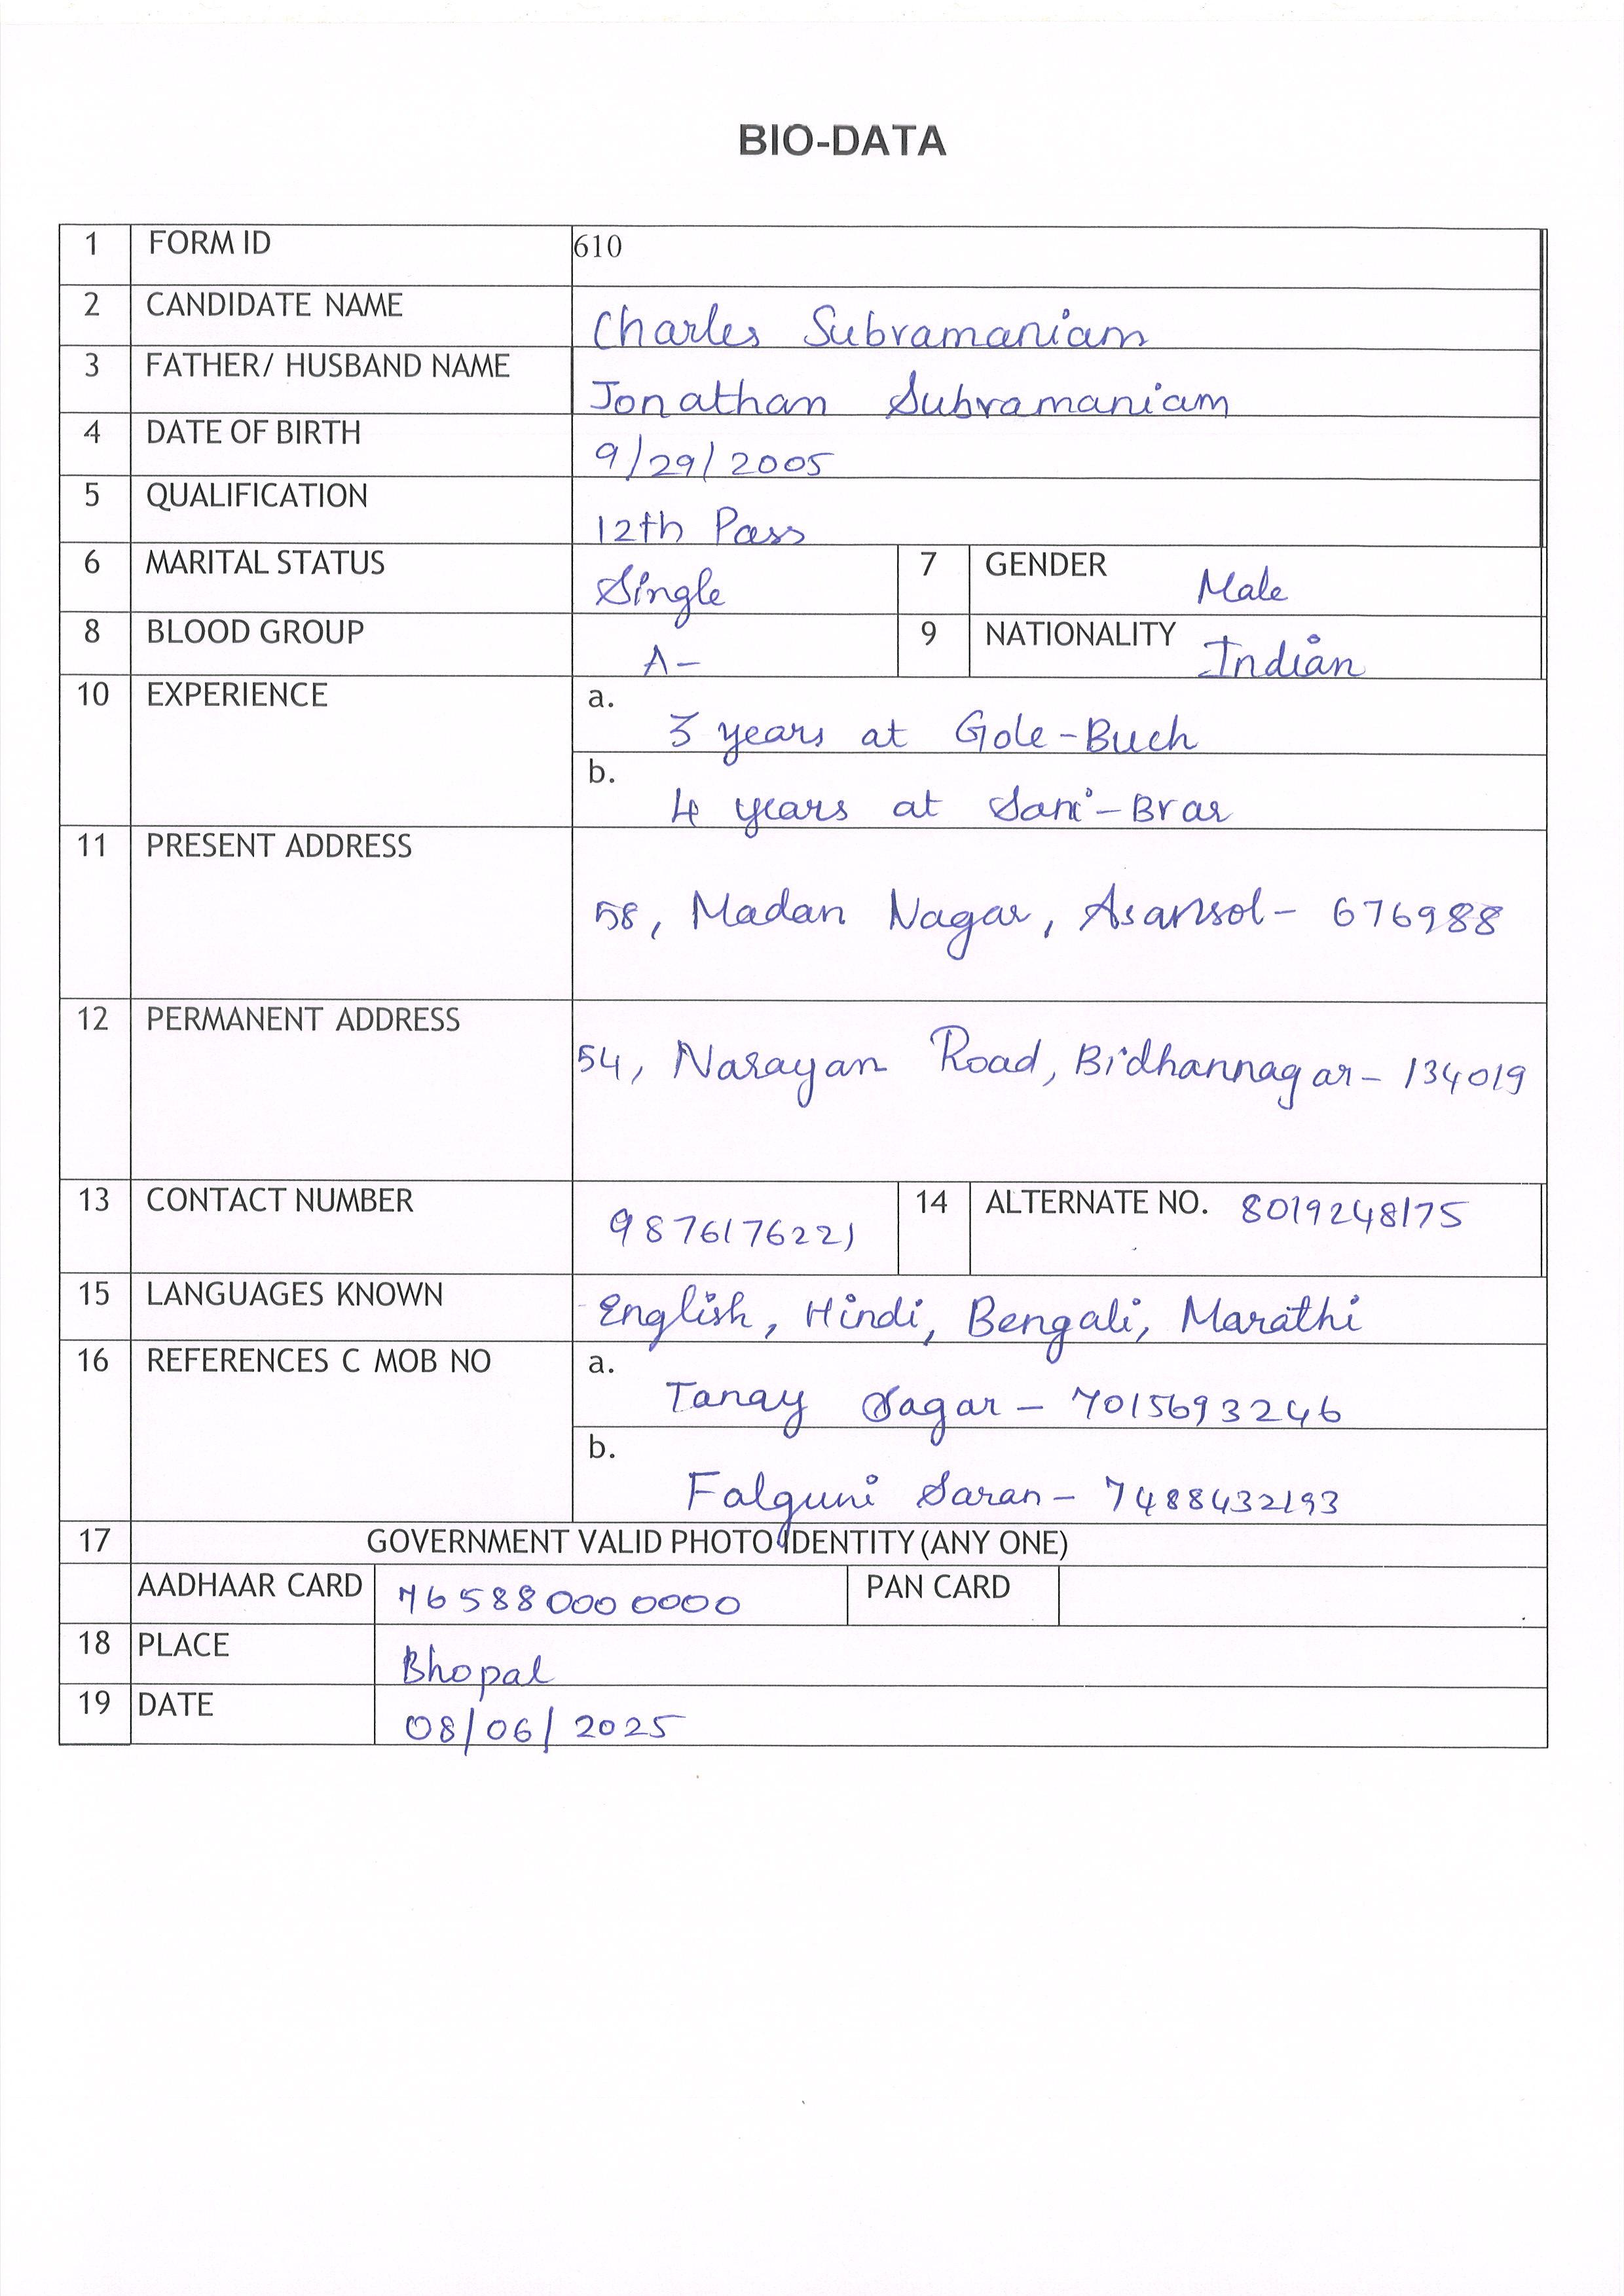 BIO-DATA
1 FORM ID 610
2 CANDIDATE NAME Charles Subramaniam
3 FATHER/ HUSBAND NAME Jonathan Subramaniam
4 DATE OF BIRTH 9/29/2005
5 QUALIFICATION 12th Pass
6 MARITAL STATUS Single 7 GENDER Male
8 BLOOD GROUP A- 9 NATIONALITY Indian
10 EXPERIENCE a. 3 years at Gole-Buch
b. 4 years at Sani-Brar
11 PRESENT ADDRESS 58, Madan Nagar, Asansol- 676988
12 PERMANENT ADDRESS 54, Narayan Road, Bidhannagar- 134019
13 CONTACT NUMBER 9876176221 14 ALTERNATE NO. 8019248175
15 LANGUAGES KNOWN English, Hindi, Bengali, Marathi
16 REFERENCES C MOB NO a. Tanay Sagar- 7015693246
b. Falguni Saran- 7488432193
17 GOVERNMENT VALID PHOTO IDENTITY (ANY ONE)
AADHAAR CARD 765880000000 PAN CARD
18 PLACE Bhopal
19 DATE 08/06/2025